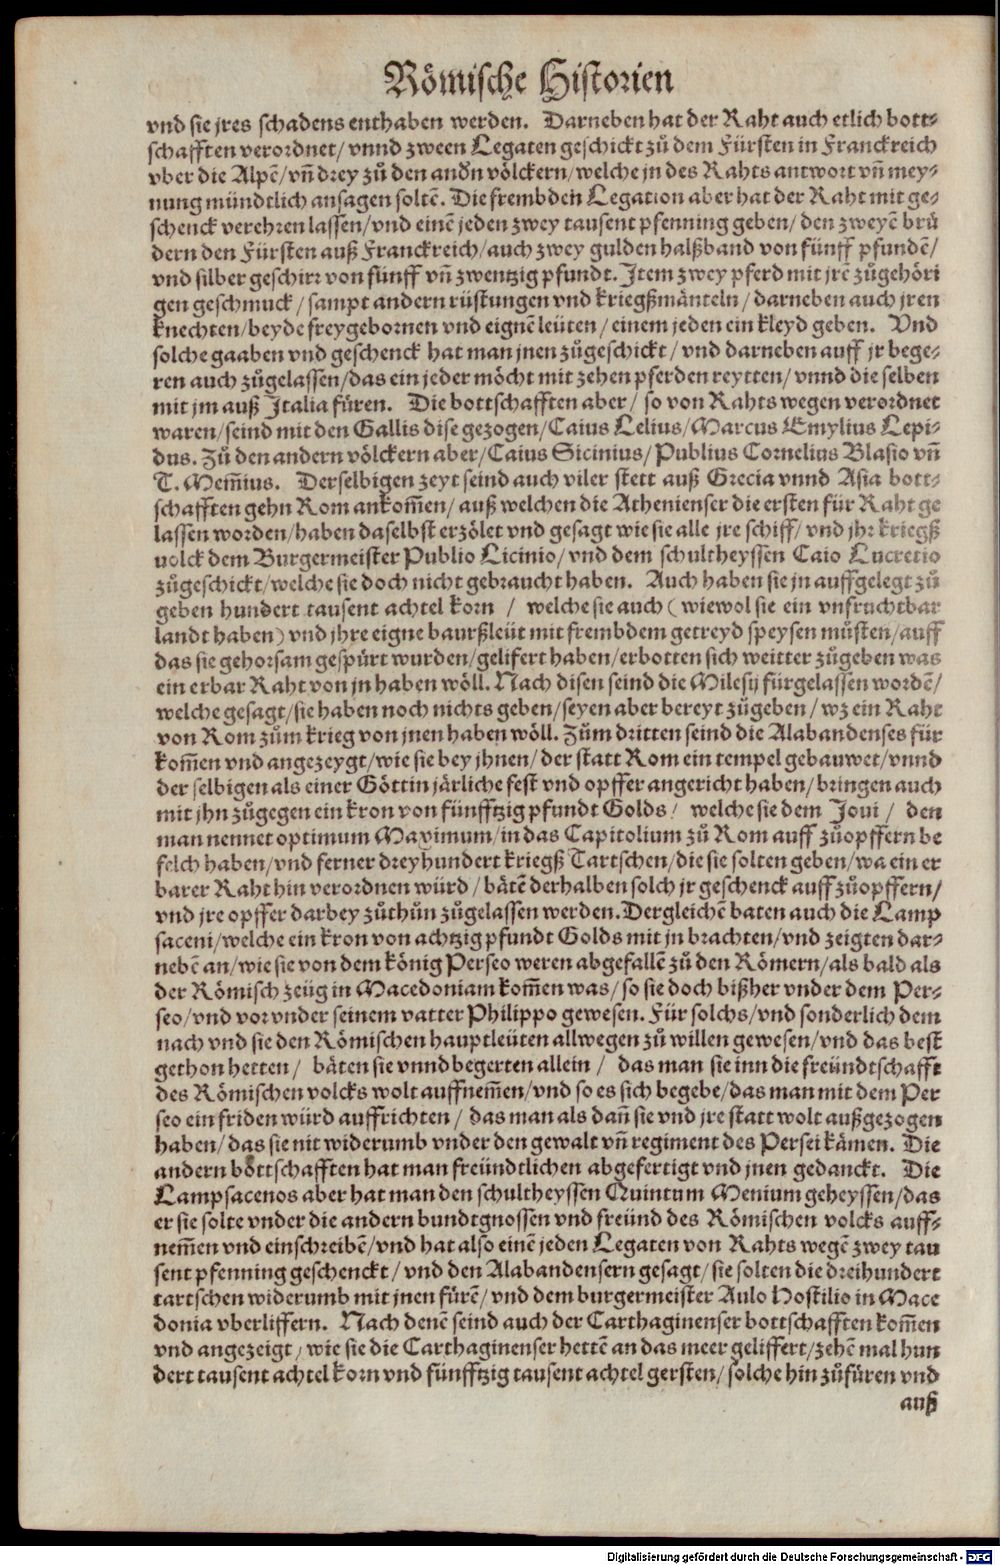 Römische Historien
vnd sie jres schadens enthaben werden. Darneben hat der Raht auch etlich bott⸗
schafften verordnet/ vnnd zween Legaten geschickt zů dem Fürsten in Franckreich
vber die Alpē/ vñ drey zů den andn völckern/ welche jn des Rahts antwort vñ mey⸗
nung mündtlich ansagen soltē. Die frembden Legation aber hat der Raht mit ge⸗
schenck verehren lassen/ vnd einē jeden zwey tausent pfenning geben/ den zweyē brü
dern den Fürsten auß Franckreich/ auch zwey gulden halßband von fünff pfundē/
vnd silber geschirr von fünff vñ zwentzig pfundt. Item zwey pferd mit jrē zůgehöri
gen geschmuck/ sampt andern rüstungen vnd kriegßmänteln/ darneben auch jren
knechten/ beyde freygebornen vnd eignē leüten/ einem jeden ein kleyd geben. Vnd
solche gaaben vnd geschenck hat man jnen zůgeschickt/ vnd darneben auff jr bege⸗
ren auch zůgelassen/ das ein jeder möcht mit zehen pferden reytten/ vnnd die selben
mit jm auß Italia füren. Die bottschafften aber/ so von Rahts wegen verordnet
waren/ seind mit den Gallis dise gezogen/ Caius Lelius/ Marcus Emylius Lepi⸗
dus. Zů den andern völckern aber/ Caius Sicinius/ Publius Cornelius Blasio vñ
T. Mem̄ius. Derselbigen zeyt seind auch viler stett auß Grecia vnnd Asia bott⸗
schafften gehn Rom ankom̄en/ auß welchen die Athenienser die ersten für Raht ge
lassen worden/ haben daselbst erzölet vnd gesagt wie sie alle jre schiff/ vnd jhr kriegß
uolck dem Burgermeister Publio Licinio/ vnd dem schultheyssen Caio Lucretio
zůgeschickt/ welche sie doch nicht gebraucht haben. Auch haben sie jn auffgelegt zů
geben hundert tausent achtel korn / welche sie auch (wiewol sie ein vnfruchtbar
landt haben) vnd jhre eigne baurßleüt mit frembdem getreyd speysen müsten/ auff
das sie gehorsam gespürt wurden/ gelifert haben/ erbotten sich weitter zůgeben was
ein erbar Raht von jn haben wöll. Nach disen seind die Milesij fürgelassen wordē/
welche gesagt/ sie haben noch nichts geben/ seyen aber bereyt zůgeben/ wz ein Raht
von Rom zům krieg von jnen haben wöll. Züm dritten seind die Alabandenses für
kom̄en vnd angezeygt/ wie sie bey jhnen/ der statt Rom ein tempel gebauwet/ vnnd
der selbigen als einer Göttin järliche fest vnd opffer angericht haben/ bringen auch
mit jhn zůgegen ein kron von fünfftzig pfundt Golds/ welche sie dem Joui / den
man nennet optimum Maximum/ in das Capitolium zů Rom auff zůopffern be
felch haben/ vnd ferner dreyhundert kriegß Tartschen/ die sie solten geben/ wa ein er
barer Raht hin verordnen würd/ bätē derhalben solch jr geschenck auff zůopffern/
vnd jre opffer darbey zůthůn zůgelassen werden. Dergleichē baten auch die Lamp
saceni/ welche ein kron von achtzig pfundt Golds mit jn brachten/ vnd zeigten dar⸗
nebē an/ wie sie von dem könig Perseo weren abgefallē zů den Römern/ als bald als
der Römisch zeüg in Macedoniam kom̄en was/ so sie doch bißher vnder dem Per⸗
seo/ vnd vor vnder seinem vatter Philippo gewesen. Für solchs/ vnd sonderlich dem
nach vnd sie den Römischen hauptleüten allwegen zů willen gewesen/ vnd das best
gethon hetten/ bäten sie vnnd begerten allein / das man sie inn die freündtschafft
des Römischen volcks wolt auffnem̄en/ vnd so es sich begebe/ das man mit dem Per
seo ein friden würd auffrichten/ das man als dañ sie vnd jre statt wolt außgezogen
haben/ das sie nit widerumb vnder den gewalt vñ regiment des Persei kämen. Die
andern bottschafften hat man freündtlichen abgefertigt vnd jnen gedanckt. Die
Lampsacenos aber hat man den schultheyssen Quintum Menium geheyssen/ das
er sie solte vnder die andern bundtgnossen vnd freünd des Römischen volcks auff⸗
nem̄en vnd einschreibē/ vnd hat also einē jeden Legaten von Rahts wegē zwey tau
sent pfenning geschenckt/ vnd den Alabandensern gesagt/ sie solten die dreihundert
tartschen widerumb mit jnen fürē/ vnd dem burgermeister Aulo Hostilio in Mace
donia vberliffern. Nach denē seind auch der Carthaginenser bottschafften kom̄en
vnd angezeigt/ wie sie die Carthaginenser hettē an das meer geliffert/ zehē mal hun
dert tausent achtel korn vnd fünfftzig tausent achtel gersten/ solche hin zůfüren vnd
auß
Digitalisierung gefördert durch die Deutsche Forschungsgemeinschaft - DFG